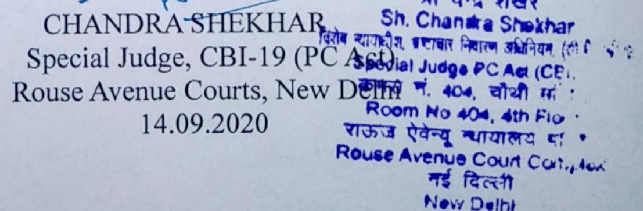 CHANDRA SHEKHAR
Special Judge, CBI-19 (PC Act)
Rouse Avenue Courts, New Delhi
14.09.2020
Sh. Chandra Shekhar
विशेष न्यायाधीश, भ्रष्टाचार निवारण अधिनियम
Special Judge PC Act (CBI
नं. 404, चौथी
Room No 404, 4th Flo
राऊज ऐवेन्यू न्यायालय
Rouse Avenue Court
नई दिल्ली
New Delhi